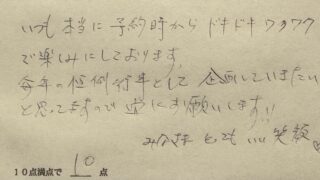 いつも本当に予約時からドキドキワクワク
で楽しみにしております。
毎年の恒例行事として企画していきたい
と思ってますので宜しくお願いします!!
みなさま とても いい笑顔
10点満点で 10 点